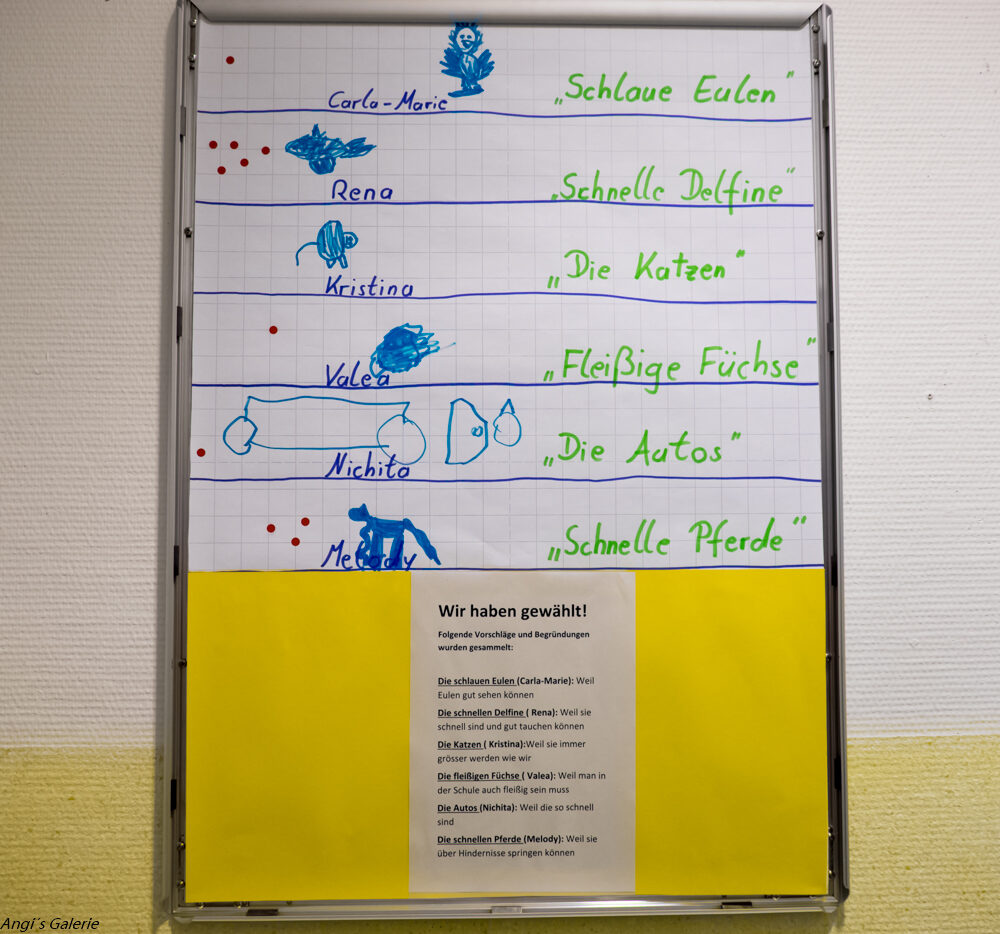 Carla-Marie „Schlaue Eulen"
Rena „Schnelle Delfine"
Kristina „Die Katzen"
Valea „Fleißige Füchse"
Nichita „Die Autos"
Melody „Schnelle Pferde"
Wir haben gewählt!
Folgende Vorschläge und Begründungen
wurden gesammelt:
Die schlauen Eulen (Carla-Marie): Weil
Eulen gut sehen können
Die schnellen Delfine ( Rena): Weil sie
schnell sind und gut tauchen können
Die Katzen ( Kristina):Weil sie immer
grösser werden wie wir
Die fleißigen Füchse ( Valea): Weil man in
der Schule auch fleißig sein muss
Die Autos (Nichita): Weil die so schnell
sind
Die schnellen Pferde (Melody): Weil sie
über Hindernisse springen können
Angi´s Galerie